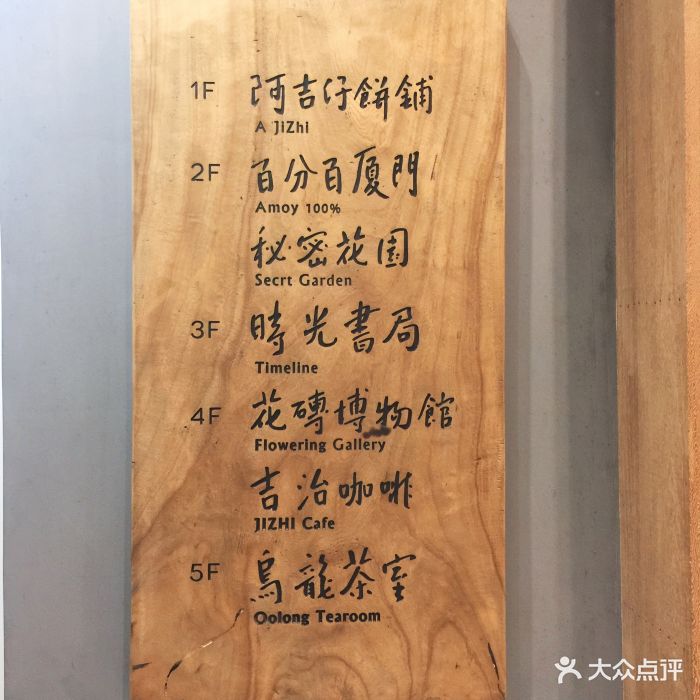 1F 阿吉仔餅鋪
A JiZhi
2F 百分百厦門
Amoy 100%
秘密花园
Secrt Garden
3F 時光書局
Timeline
4F 花磚博物館
Flowering Gallery
吉治咖啡
JIZHI Cafe
5F 烏龍茶室
Oolong Tearoom
大众点评